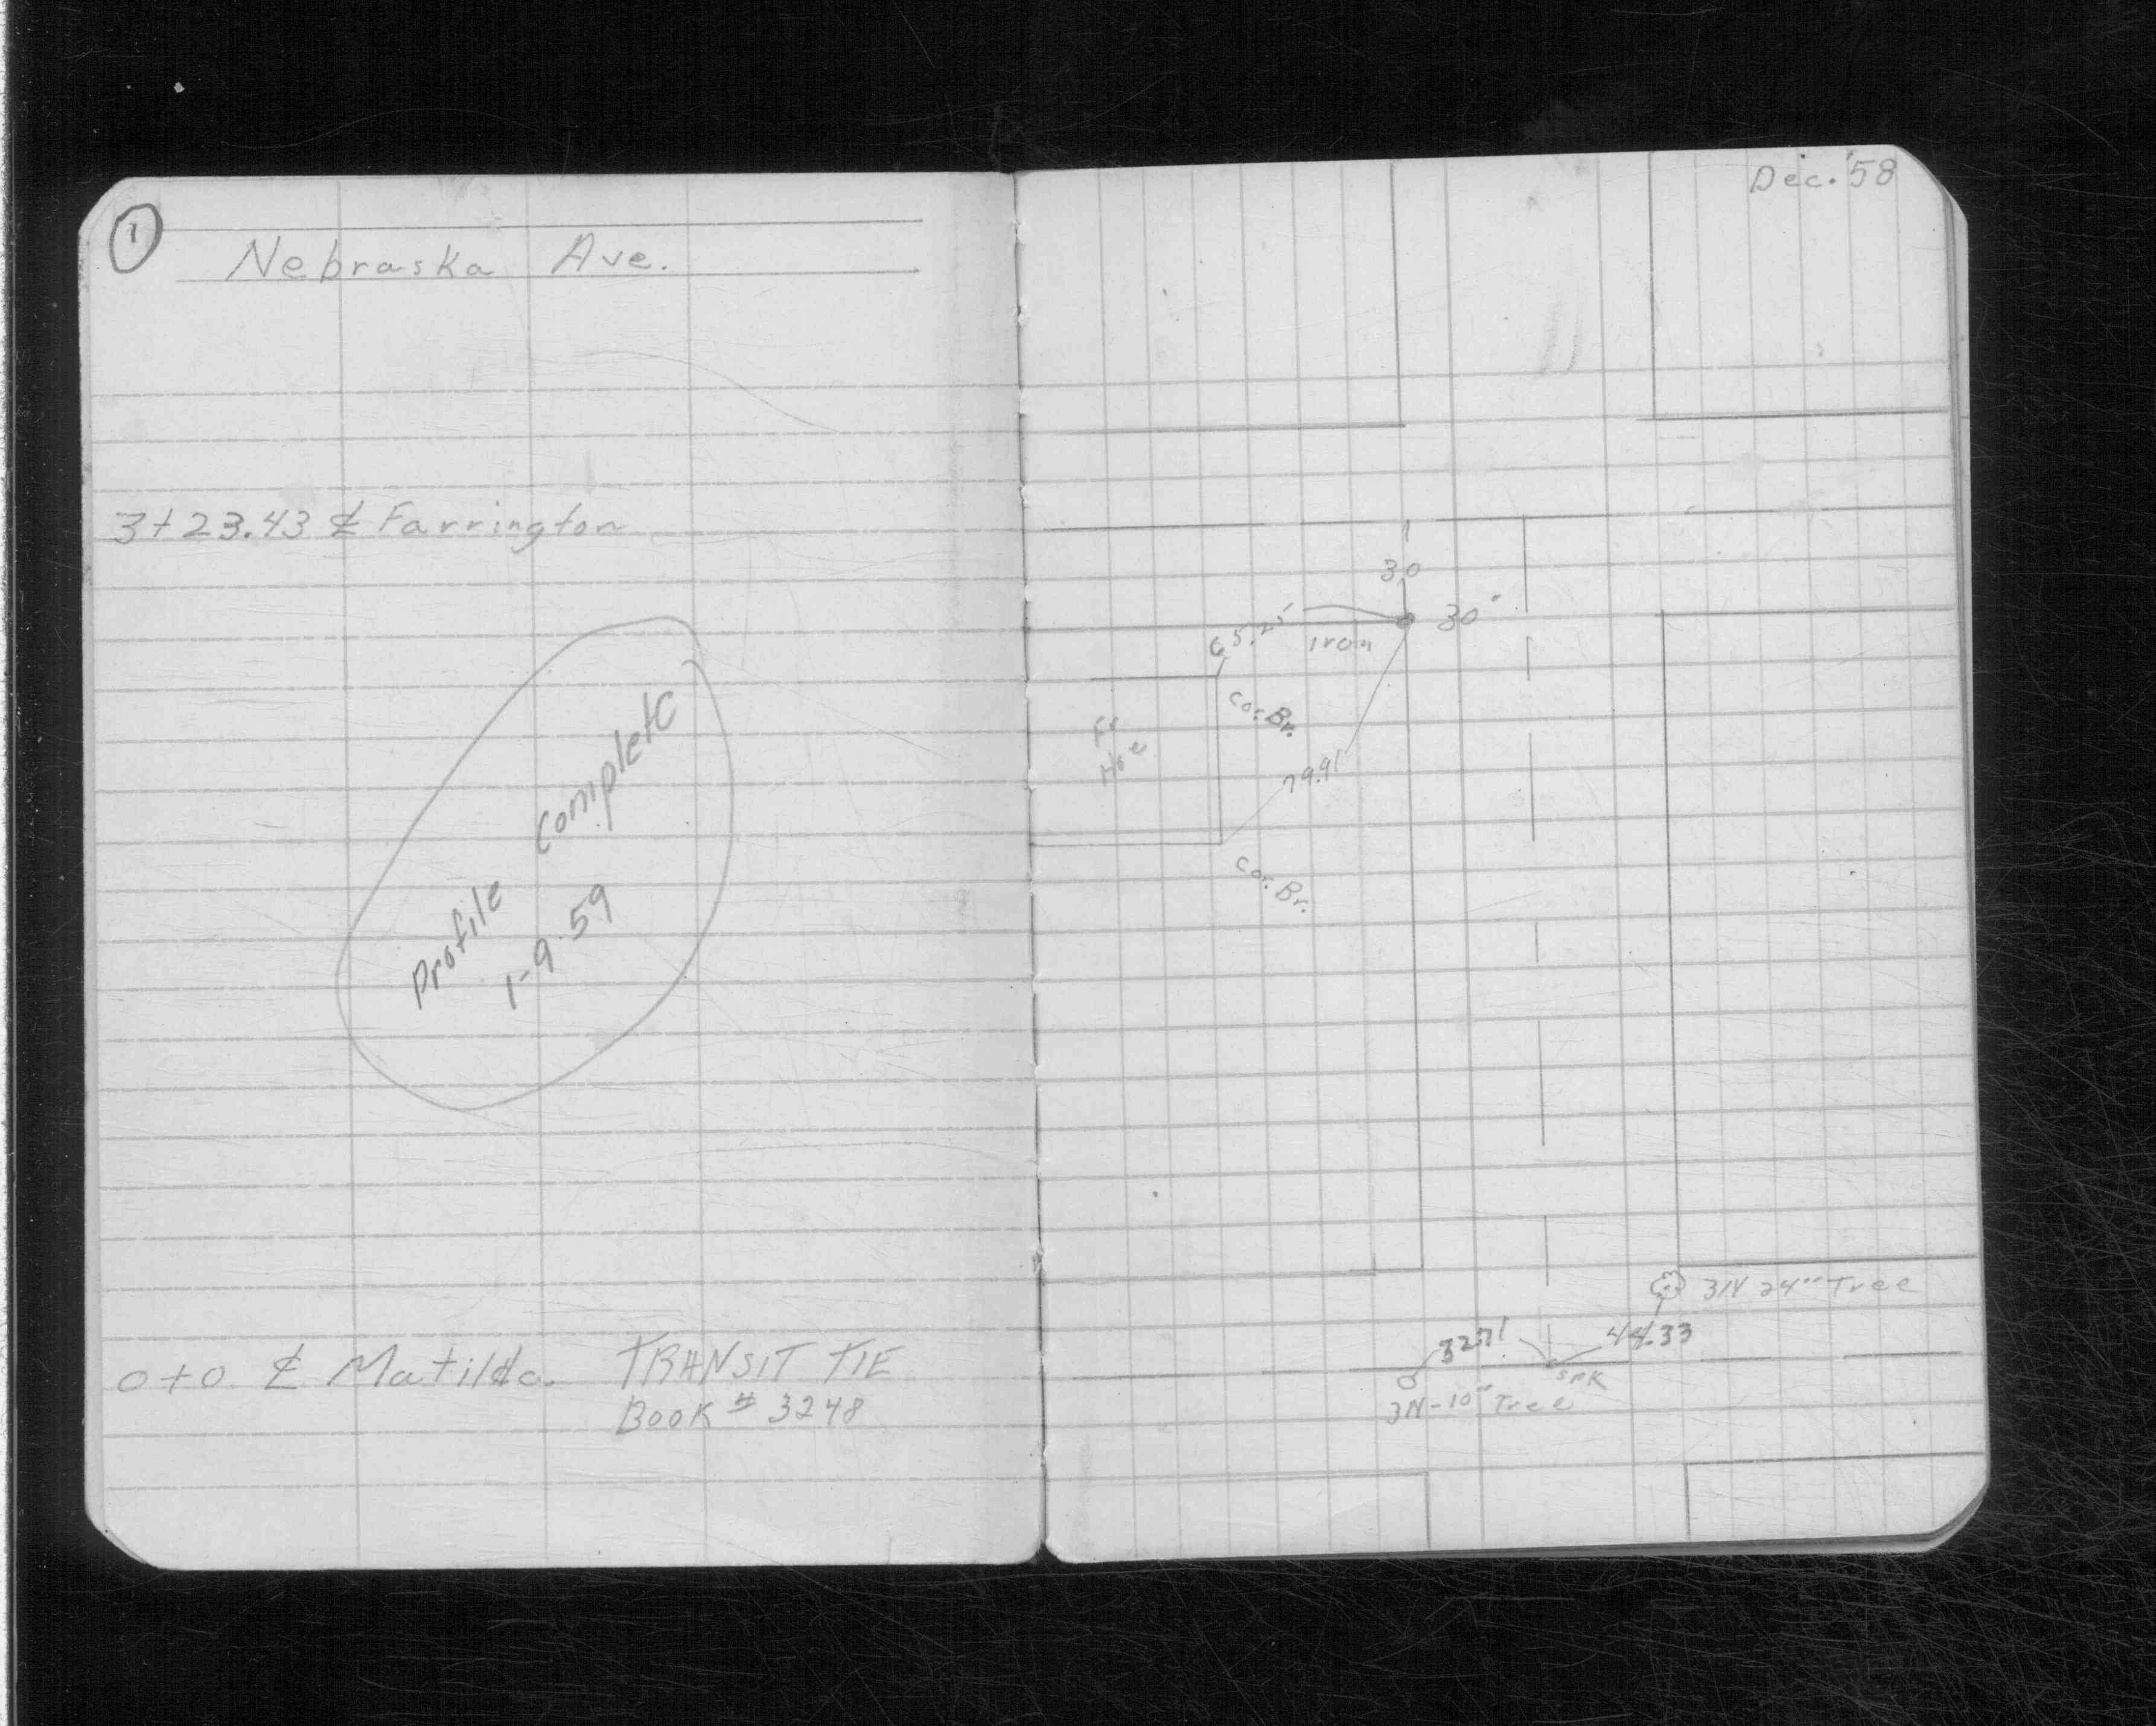 1
Nebraska Ave.
3+23.43 ⅊ Farrington
Profile Complete
1-9-59
0+0 ⅊ Matilda
TRANSIT TIE
BOOK # 3248
Dec. '58
30
30'
65.21'
Iron
Cor. Br.
Fr
Hse
79.91
Cor. Br.
3N 24" Tree
44.33
SPK
3N-10" Tree